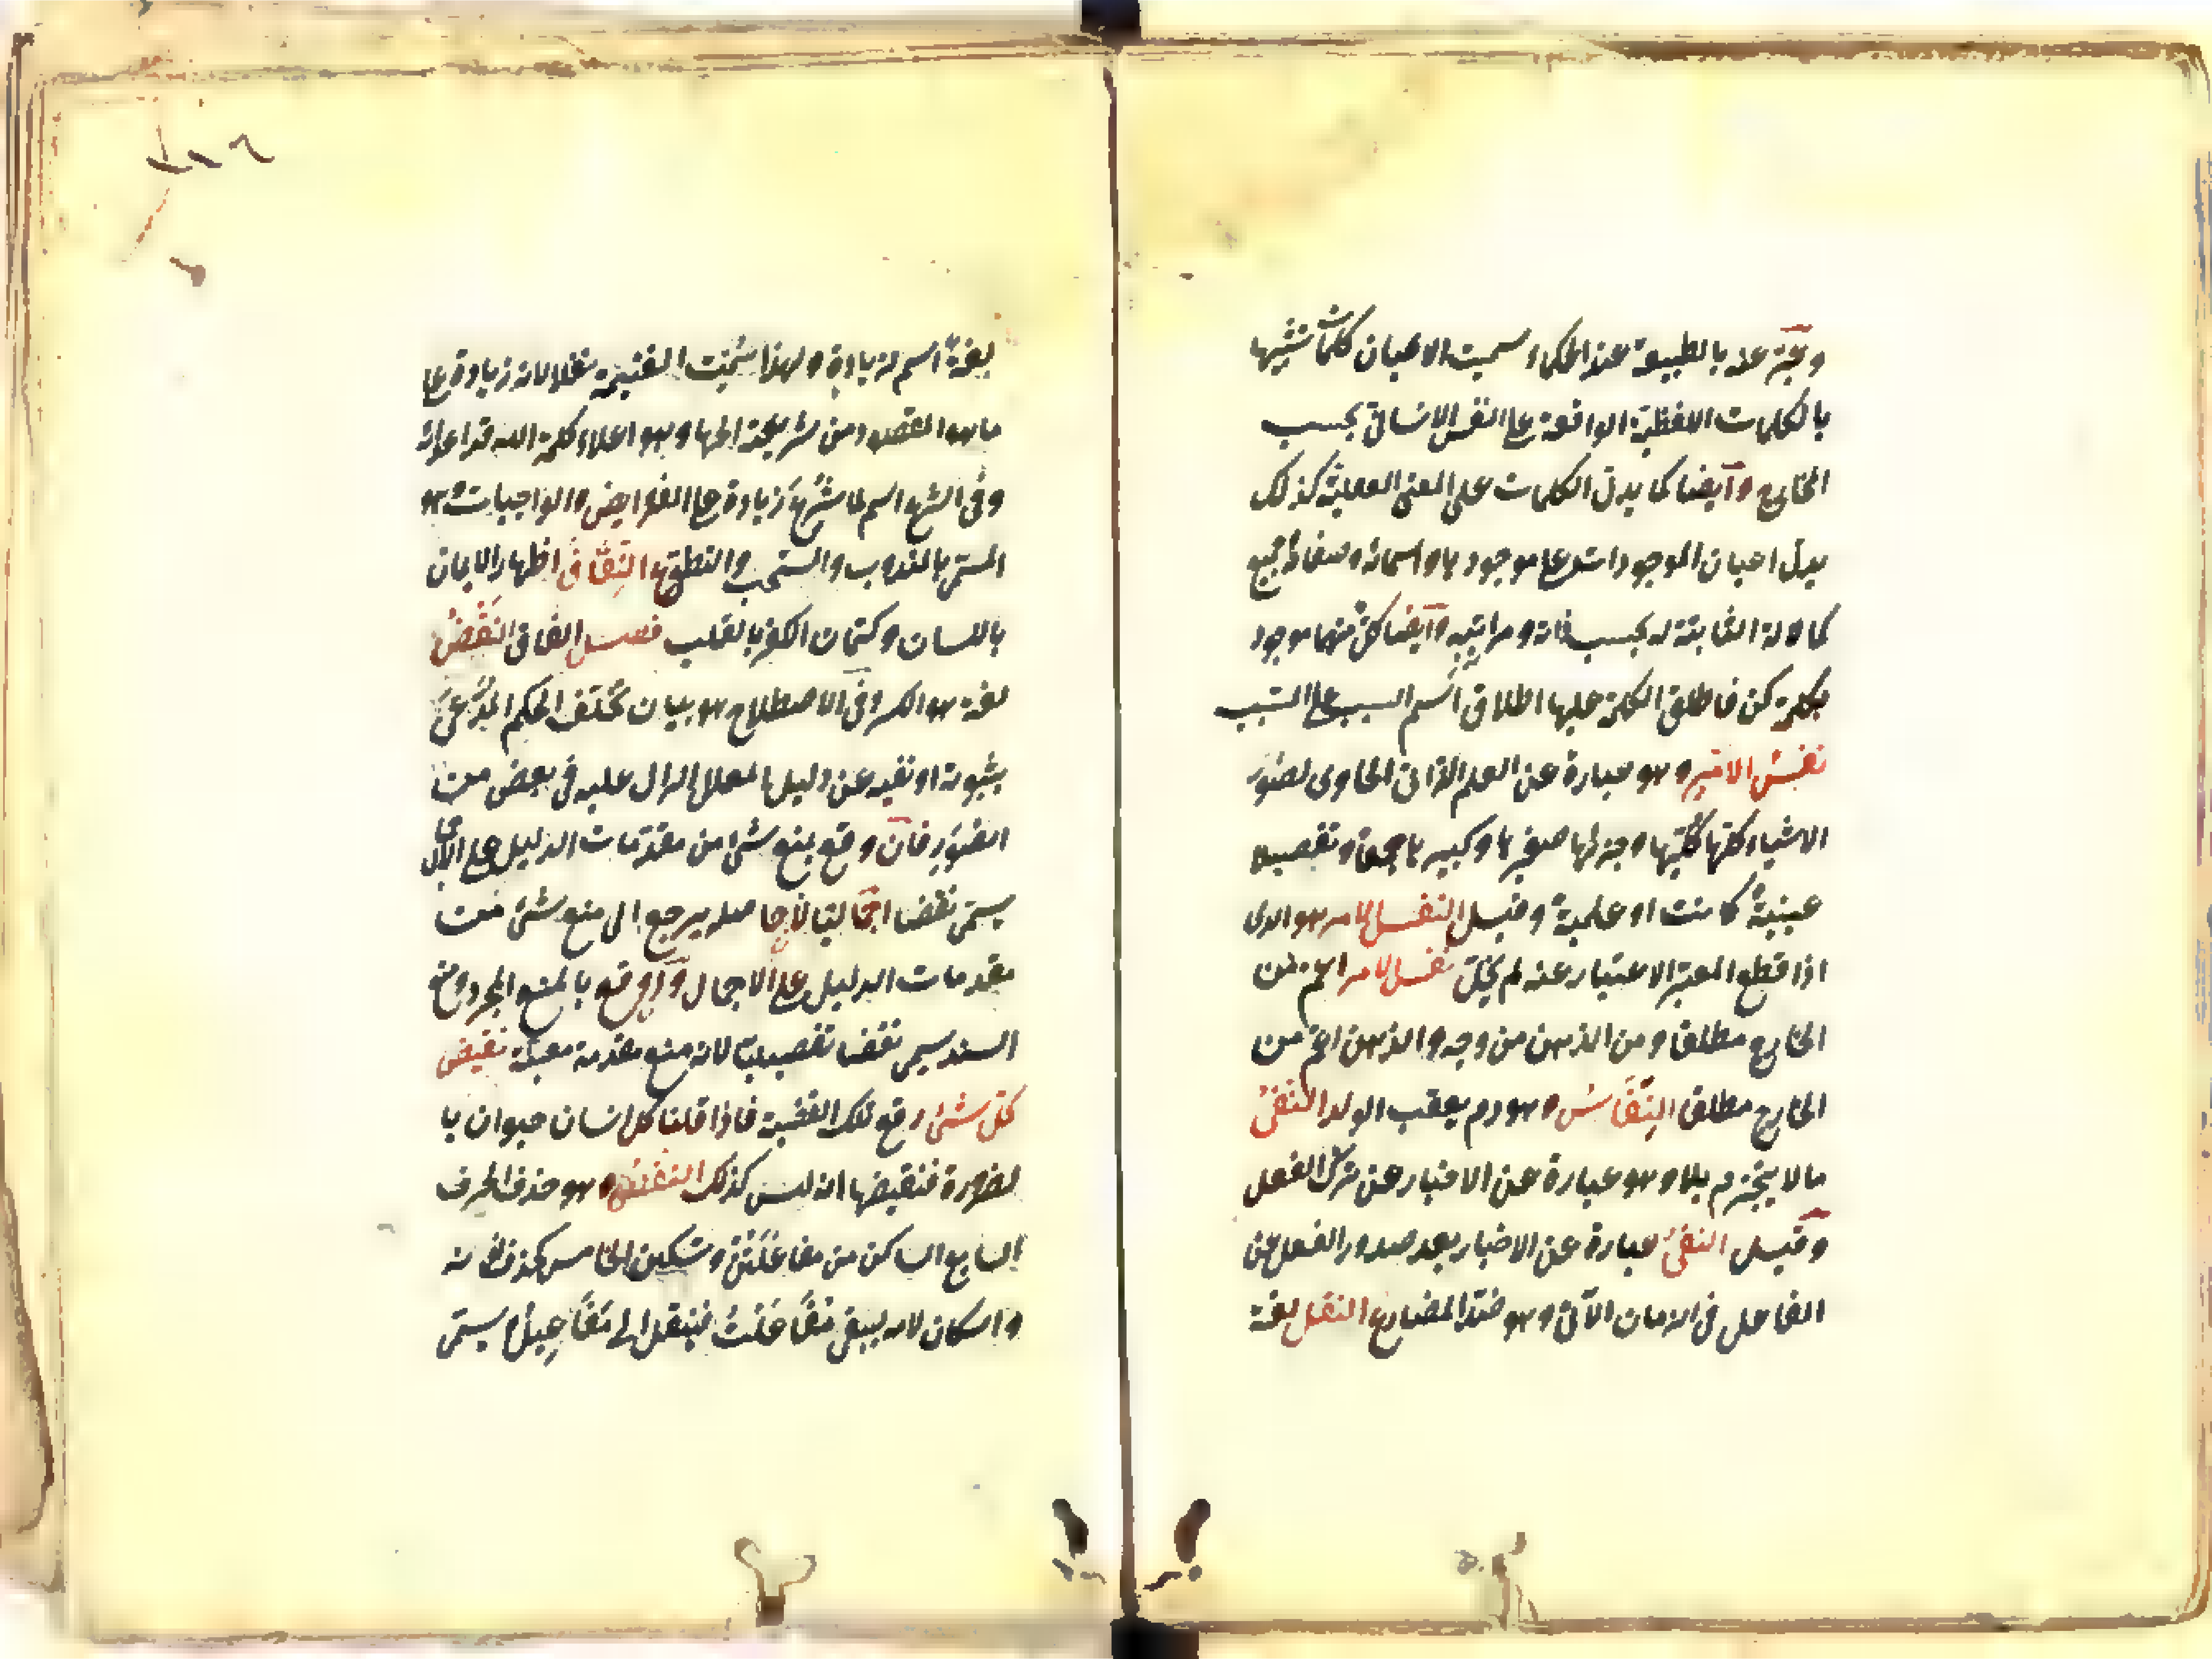 وعبر عنه بالطبيعة عند الحكماء سميت الاعيان كلمات تشبيها
بالكلمات اللفظية الواقعة على النفس الانسانى بحسب
المخارج وايضا كما يدل الكلمات على المعنى العقلية كذلك
يدل اعيان الموجودات على موجودها واسمائه وصفاته وجميع
كمالاته الثابتة له بحسب ذاته ومراتبه وايضا كل منهما موجود
بكلمة كن فاطلق الكلمة عليها اطلاق اسم السبب على المسبب
نفس الامر وهو عبارة عن العلم الذاتى الحاوى لصور
الاشياء كلها كليتها وجزئيها صغيرها وكبيرها جمعا وتفصيلا
عينية كانت او علمية وقيل النفس الامر هو الذى
اذا قطع المعبر الاعتبار عنه لم يختل نفس الامر اعم من
الخارج مطلقا ومن الذهن من وجه والذهن اعم من
الخارج مطلقا النِّفَاسُ وهو دم يعقب الولد النفىُ
ما لا ينجزم بلا وهو عبارة عن الاخبار عن ترك الفعل
وقيل النفىُ عبارة عن الاخبار بعد صدور الفعل عن
الفاعل فى الزمان الآتى وهو ضد المضارع النفل لغة
٢٨٦
لغة اسم لزيادة ولهذا سُمّيت الغنيمة نفلا لانه زيادة على
ما هو المقصود من شرعية الجهاد وهو اعلاء كلمة الله قد اعدائه
وفى الشرع اسم لما شُرِع زيادة على الفرايض والواجبات وهو
المسمى بالمندوب والمستحب والتطوع النِّفَاق اظهار الايمان
باللسان وكتمان الكفر بالقلب فصل القاف النَّقْضُ
لغة هو الكسر وفى الاصطلاح هو بيان تخلف الحكم المدَّعَى
بثبوته او نفيه عن دليل المعلل الدال عليه فى بعض من
الصُّوَر فان وقع بمنع شئ من مقدمات الدليل على الاجمال
يسمى نقضا اجماليا لان حاصله يرجع الى منع شئ من
مقدمات الدليل على الاجمال وان وقع بالمنع المجرد ومنع
السند سمى نقضا تفصيليا لانه منع مقدمة معينة نقيض
كل شئ رفع تلك القضية فاذا قلنا كل انسان حيوان با
لضرورة فنقيضها انه ليس كذلك النقص وهو حذف الحرف
السابع الساكن من مفاعَلَتُن وتسكين الخامس كحذف نونه
واسكان لامه ليبقى مُفَاعَلْتُ فينقل الى مَفَاعِيلُ يسمى